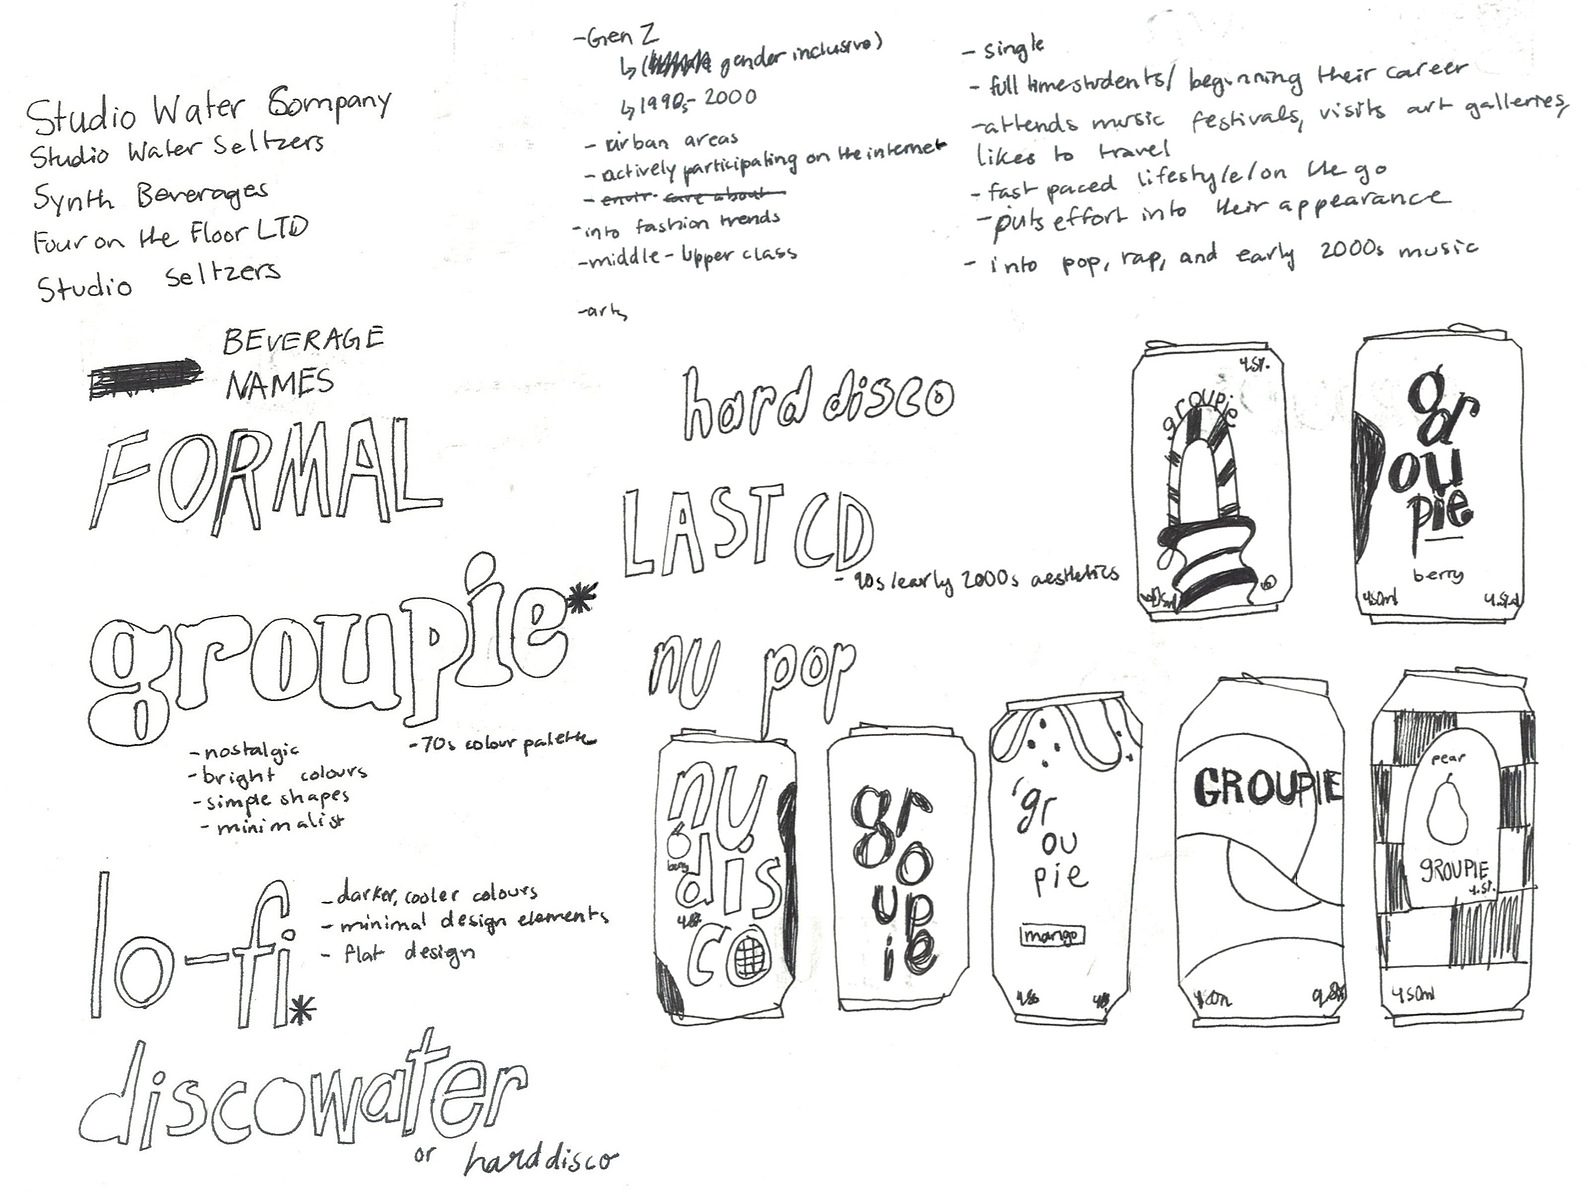 Studio Water Company
Studio Water Seltzers
Synth Beverages
Four on the Floor LTD
Studio Seltzers
-Gen Z
↳ ( gender inclusive)
↳ 1990s- 2000
- urban areas
- actively participating on the internet
- envir. care about
-into fashion trends
-middle-upper class
-arts
- single
- full time students/ beginning their career
-attends music festivals, visits art galleries,
likes to travel
- fast paced lifestyle/on the go
-puts effort into their appearance
- into pop, rap, and early 2000s music
BEVERAGE
NAMES
FORMAL
groupie*
-nostalgic
-bright colours
-simple shapes
-minimalist
-70s colour palette
lo-fi*
-darker, cooler colours
-minimal design elements
- flat design
discowater
or harddisco
hard disco
LAST CD
- 90s/early 2000s aesthetics
nu pop
4.5%.
groupie
gr
ou
pie
berry
450ml
nu
dis
co
gr
o
up
ie
gr
ou
pie
mango
GROUPIE
pear
GROUPIE
4.5%.
450ml